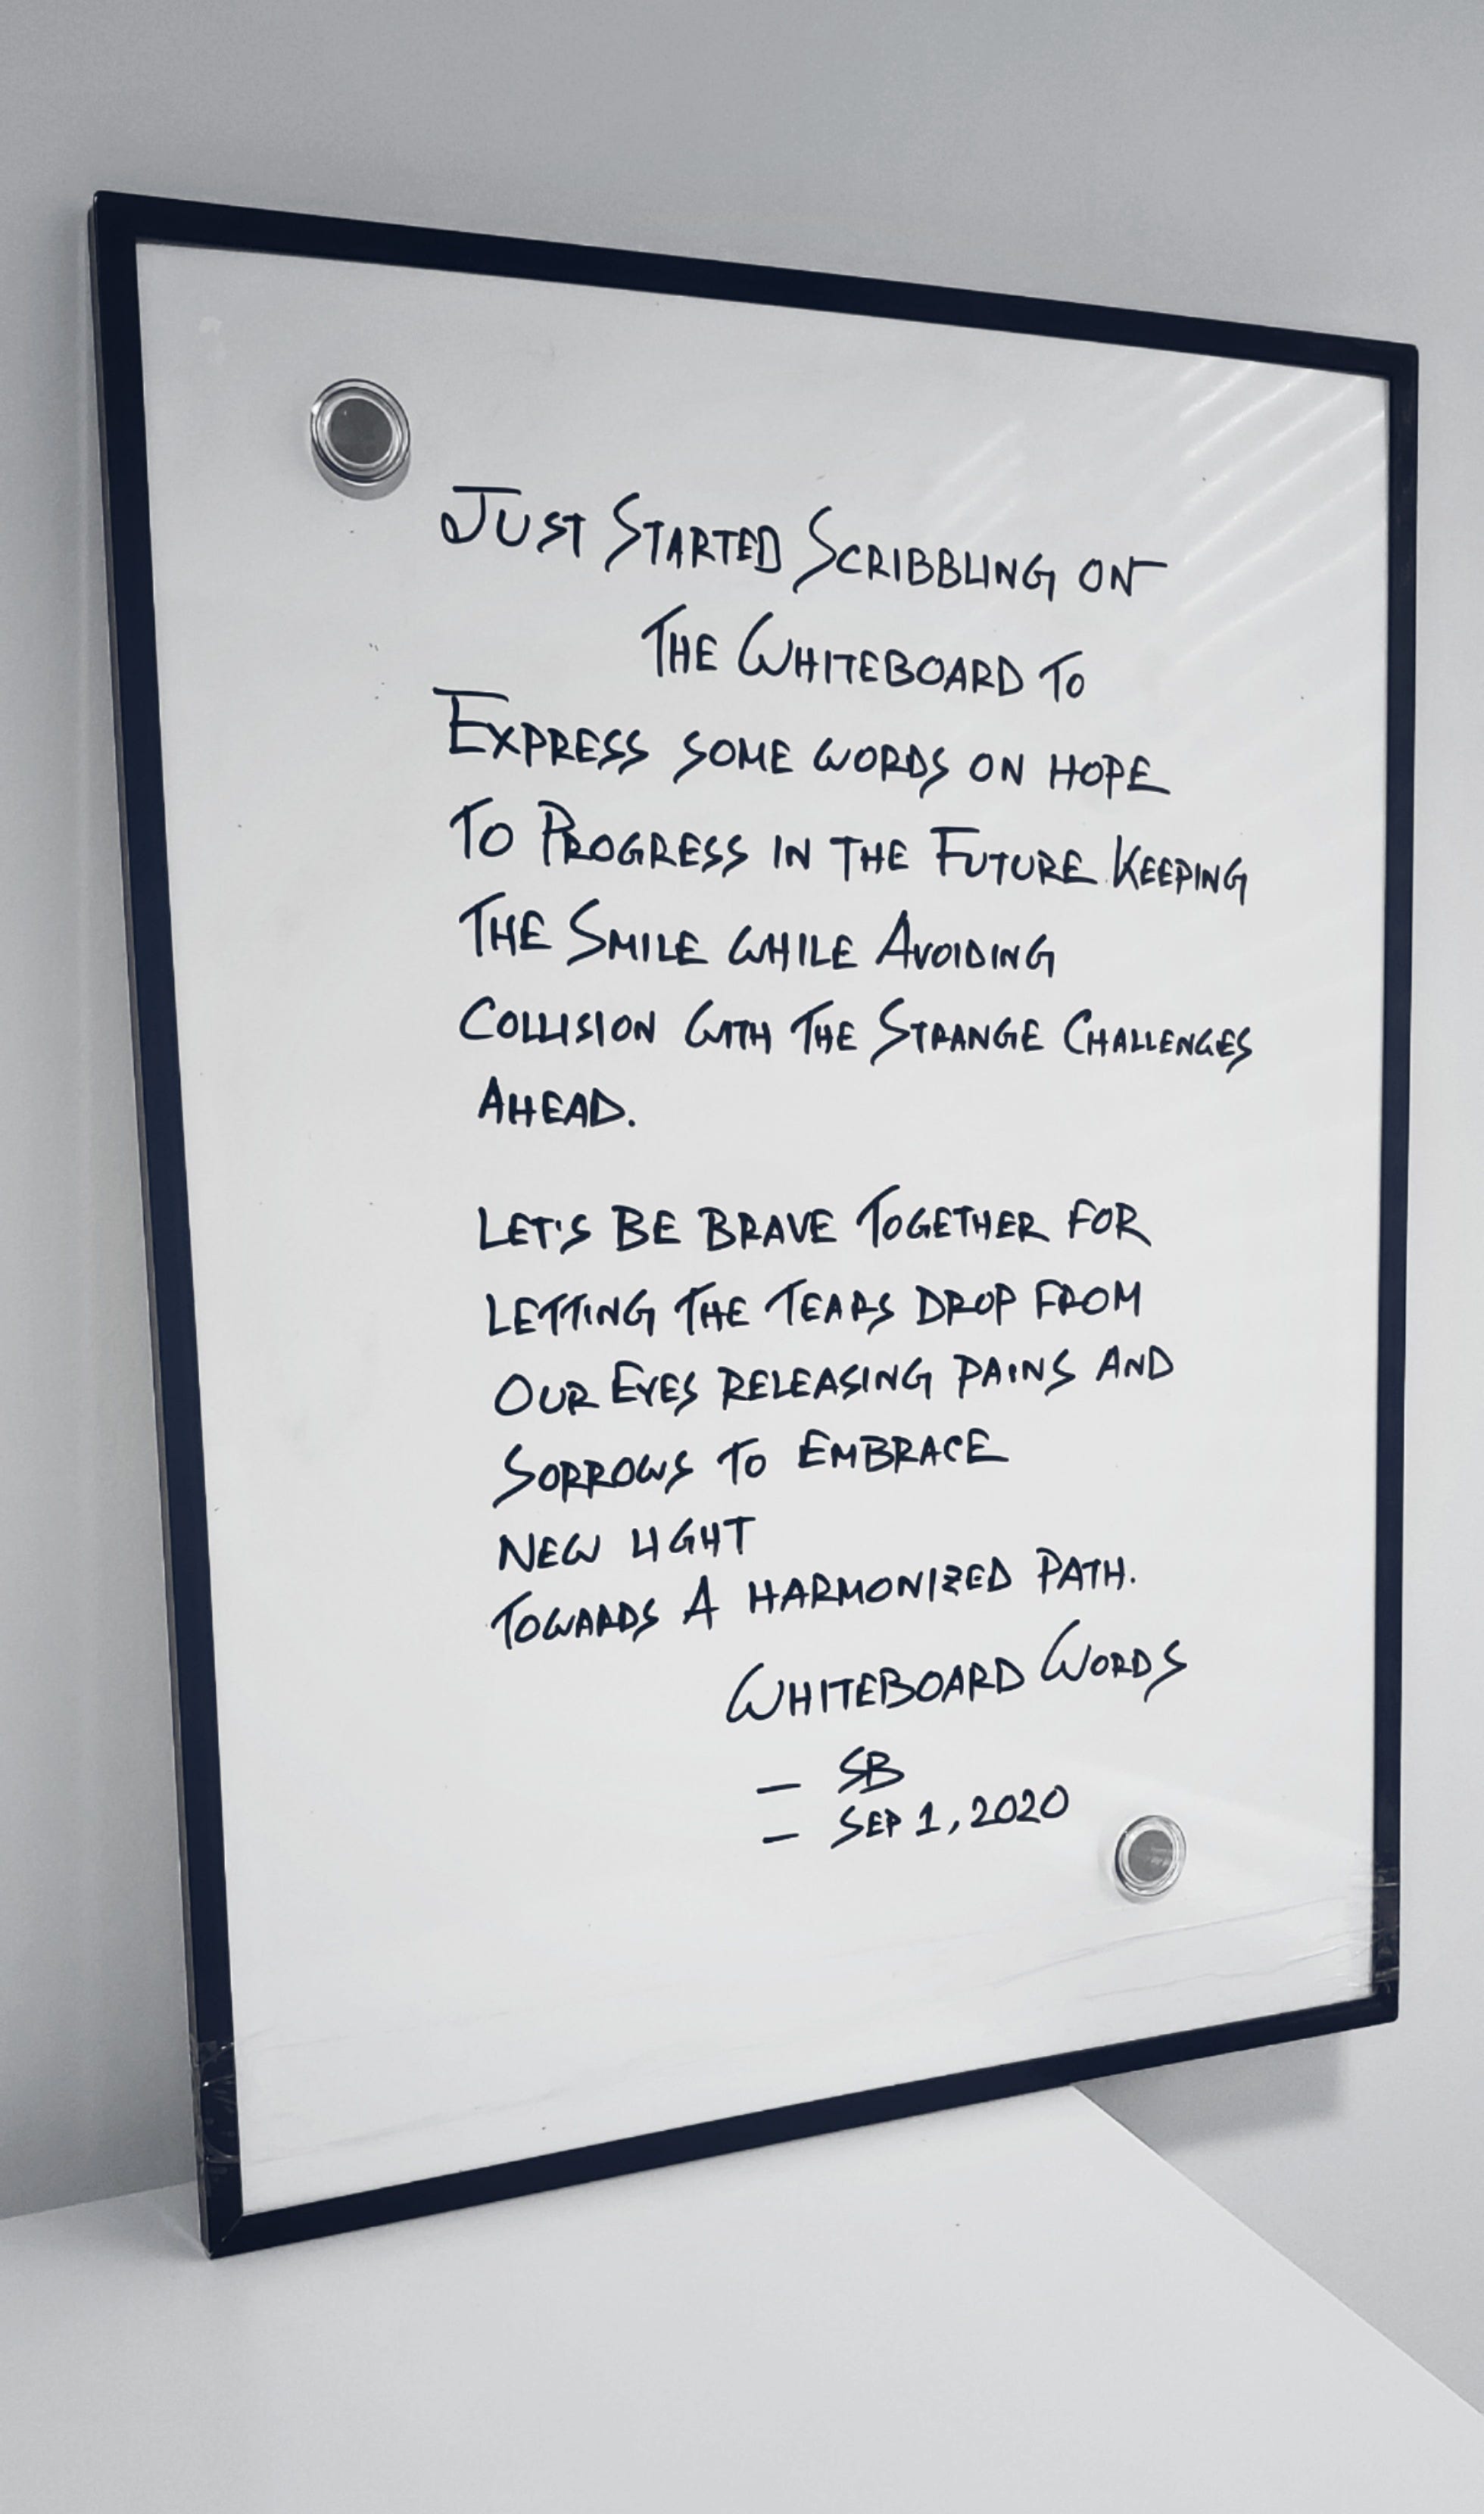 Just Started Scribbling on
The Whiteboard To
Express some words on hope
To Progress in the Future Keeping
The Smile while Avoiding
Collision with the Strange Challenges
Ahead.
Let's be brave Together for
letting the tears drop from
our Eyes releasing pains and
Sorrows to Embrace
new light
Towards A harmonized Path.
Whiteboard Words
— SB
— Sep 1, 2020